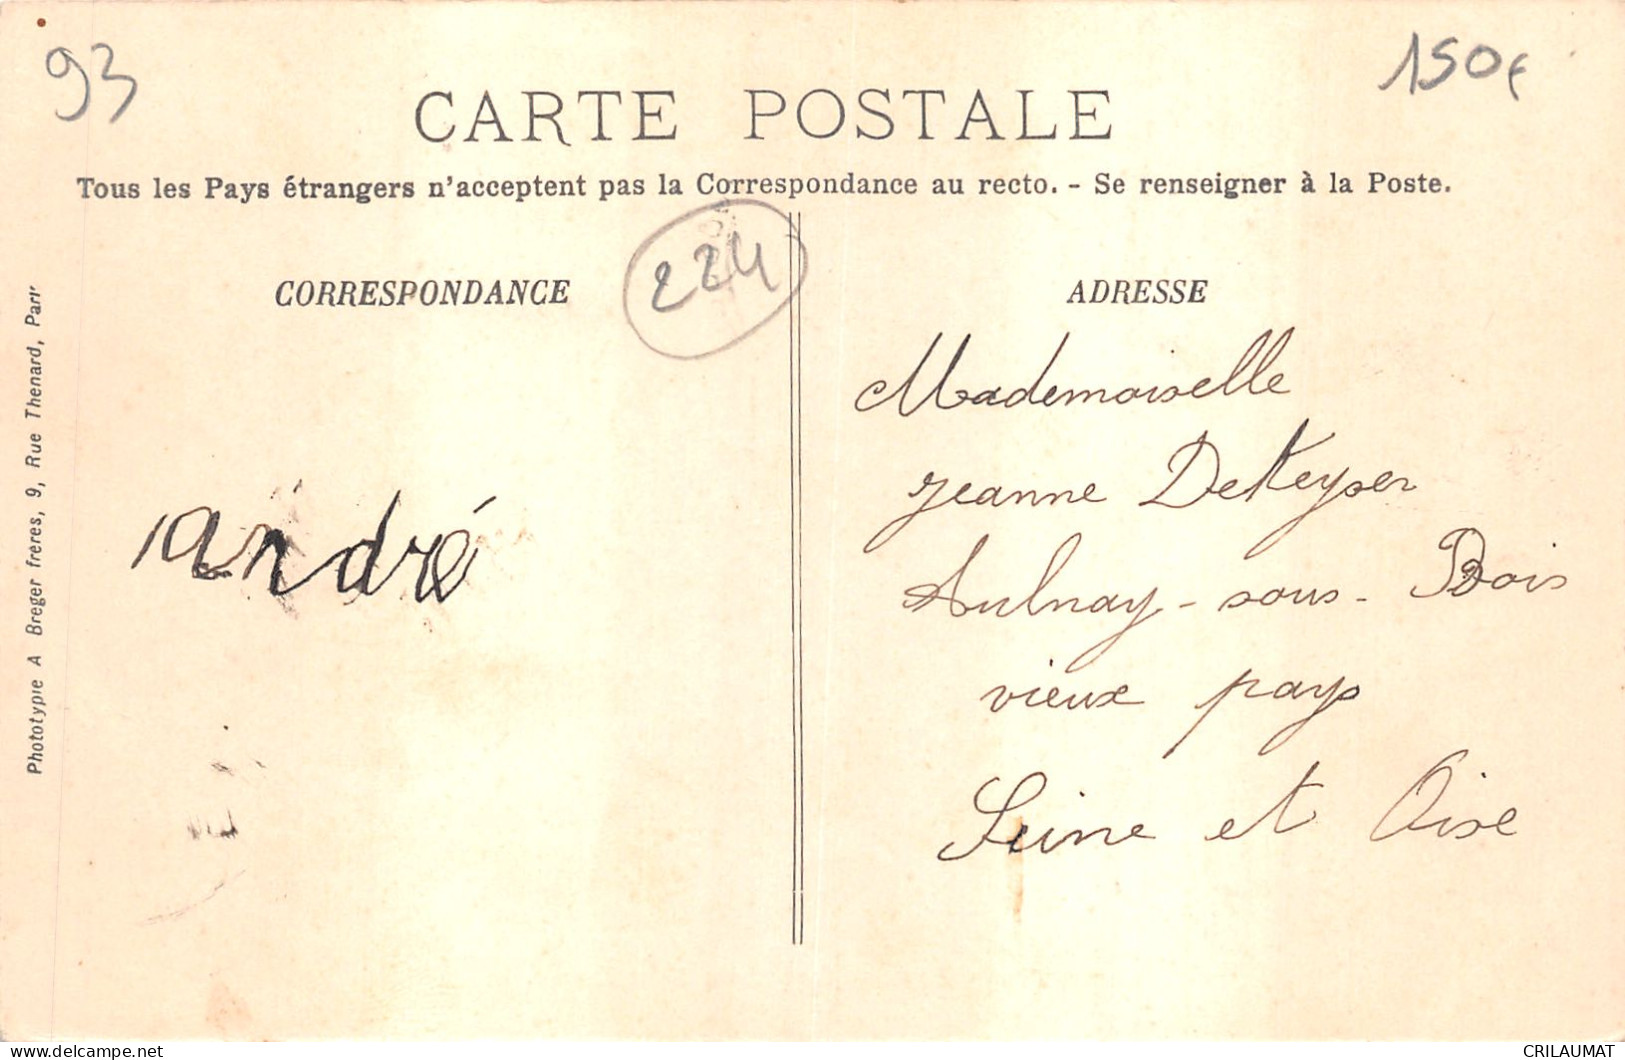 93
150€
CARTE POSTALE
Tous les Pays étrangers n'acceptent pas la Correspondance au recto. - Se renseigner à la Poste.
224
CORRESPONDANCE
André
ADRESSE
Mademoiselle
Jeanne DeKeyser
Aulnay-sous-Bois
vieux pays
Seine et Oise
Phototypie A Breger freres, 9, Rue Thenard, Pari
delcampe.net
CRILAUMAT